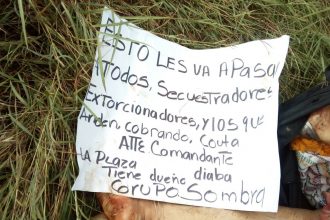 ESTO LES VA A PASA
A Todos, Secuestradores
Extorcionadores, y los que
Arden, cobrando, Couta
ATTE Comandante
LA PLAZA Tiene dueño diaba
Grupo Sombra